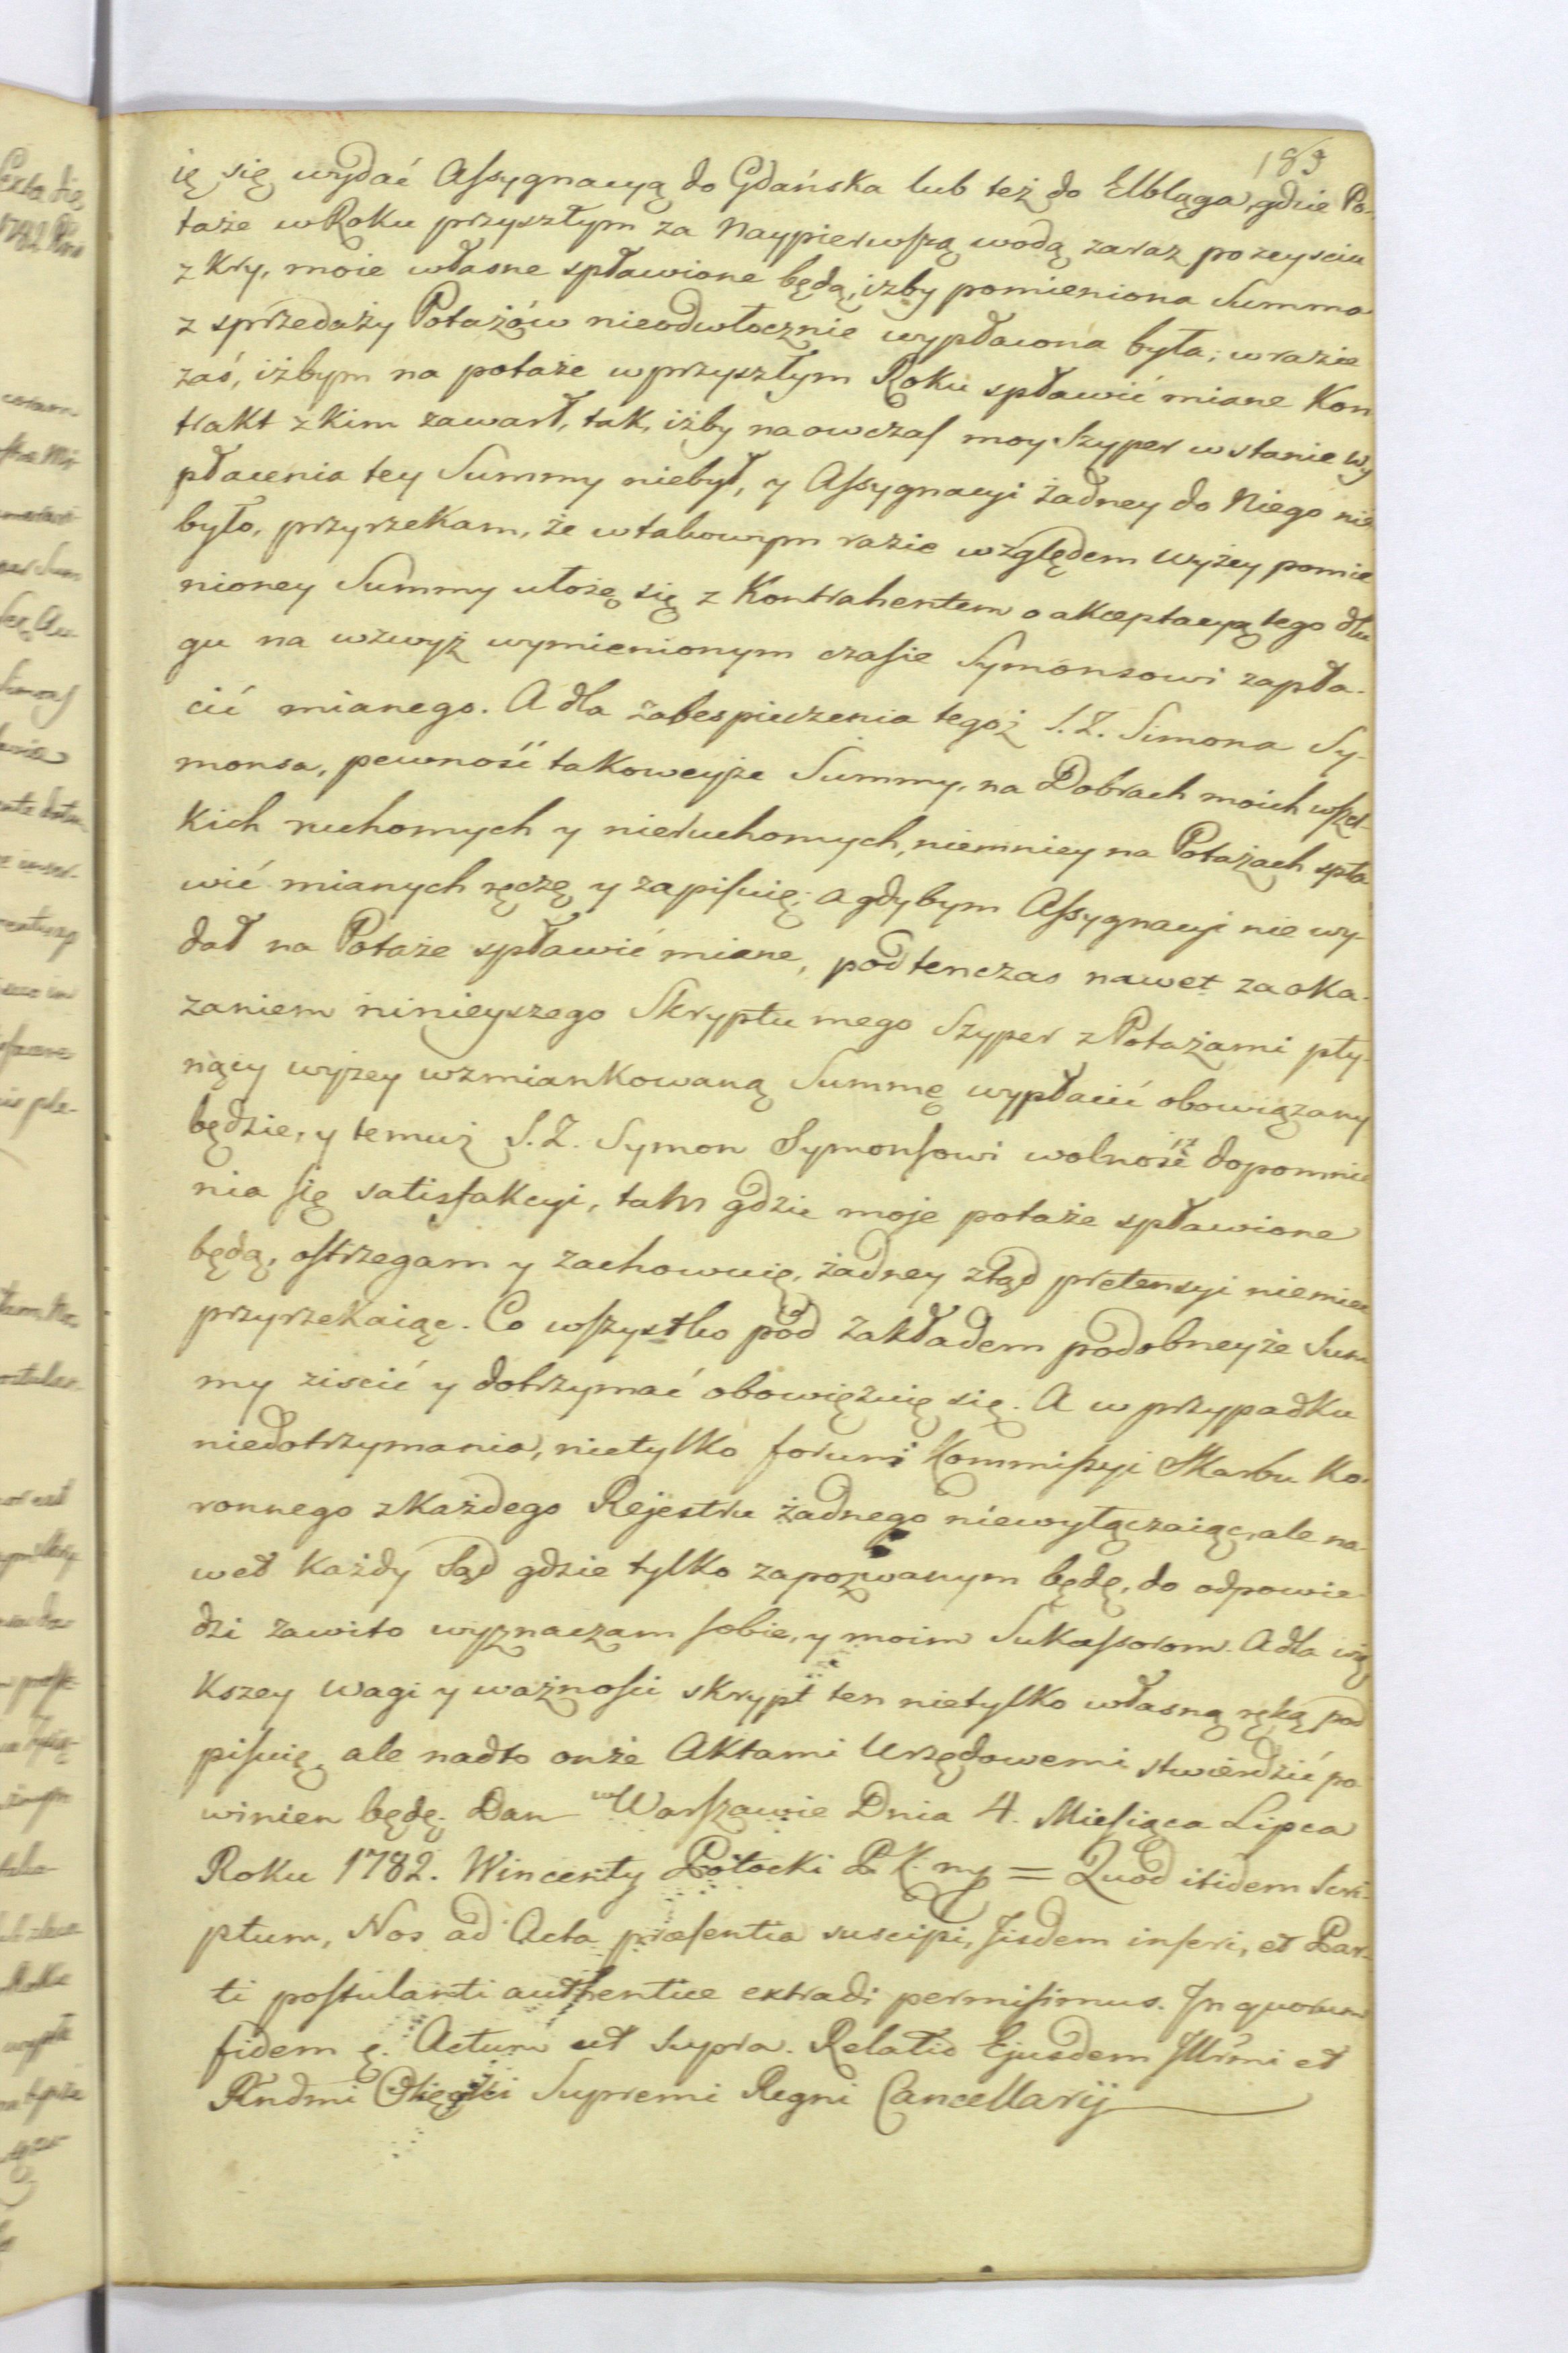 183
ię się wydać Assygnacyą do Gdańska lub też do Elbląga, gdzie Po-
taże w Roku przyszłym za Naypierwszą wodą zaraz po zeysciu
z kry, moie własne spławione będą, izby pomieniona Summa
z sprzedaży Potażów nieodwłocznie wypłacona była; w razie
zaś, iżbym na potaże w przyszłym Roku spławić miane Kon
trakt z kim zawarł, tak, iżby na owczas moy Szyper w stanie wy
płacenia tey Summy niebył, y Assygnacyi żadney do Niego nie
było, przyrzekam, że w takowym razie względem wyżey pomie
nioney Summy ułożę się z Kontrahentem o akceptacyą tego dłu
gu na wzwyż wymienionym czasie Symonsowi zapła-
cić mianego. A dla zabespieczenia tegoż S. Z. Simona Sy-
monsa, pewność takoweyże Summy, na Dobrach moich wszel-
kich ruchomych y nieruchomych, niemniey na Potażach spła
wić mianych ręczę y zapisuię; a gdybym Assygnacyi nie wy-
dał na Potaże spławić miane, podtenczas nawet za oka-
zaniem ninieyszego Skryptu mego Szyper z Potażami pły-
nący wyżey wzmiankowaną Summę wypłacić obowiązany
będzie, y temuż S. Z. Symon Symonsowi wolność dopomnie
nia się satisfakcyi, tam gdzie moje potaże spławione
będą, ostrzegam y zachowuię, żadney ztąd pretensyi niemieć
przyrzekaiąc. Co wszystko pod Zakładem podobneyże Sum
my ziscić y dotrzymać obowięzuię się. A w przypadku
niedotrzymania, nietylko forum Kommissyi Skarbu Ko-
ronnego z każdego Rejestru żadnego niewyłączaiąc, ale na
wet każdy Sąd gdzie tylko zapozwanym będę, do odpowie-
dzi zawito wyznaczam sobie, y moim Sukcessorom. A dla wię
kszey wagi y ważnosci skrypt ten nietylko własną ręką pod
pisuię, ale nadto onże Aktami Urzędowemi stwierdzić po
winien będę. Dan w Warszawie Dnia 4. Miesiąca Lipca
Roku 1782. Wincenty Potocki P. K. mp = Quod itidem Scri-
ptum, Nos ad Acta præsentia suscipi, Iisdem inseri, et Par-
ti postulanti authentice extradi permisimus. In quorum
fidem &. Actum ut supra. Relatio Ejusdem Illrmi et
Rndmi Okięcki Supremi Regni Cancellarij